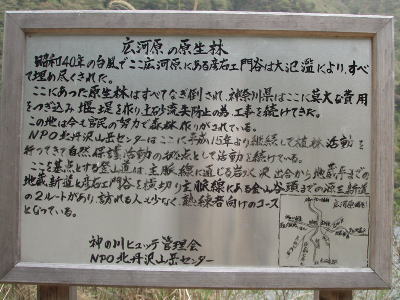 広河原の原生林
昭和40年の台風でここ広河原にある彦右エ門谷は大氾濫により、すべて
埋め尽くされた。
ここにあった原生林はすべてなぎ倒され、神奈川県はここに莫大な費用
をつぎ込み堰堤を作り土砂流失防止の為、工事を続けてきた。
この地は今も官民の努力で森林作りがされている。
NPO北丹沢山岳センターはここに平成15年より継続して植林活動を
行ってきて自然保護活動の拠点として活動を続けている。
ここを基点とする登山道は主脈線に通じる岩水沢出合から地蔵平までの
地蔵新道と彦右エ門谷を横切り主脈線にある金山谷頭までの源蔵新道
の2ルートがあり、訪れる人も少なく、熟練者向けのコース
となっている。
神の川ヒュッテ管理会
NPO北丹沢山岳センター